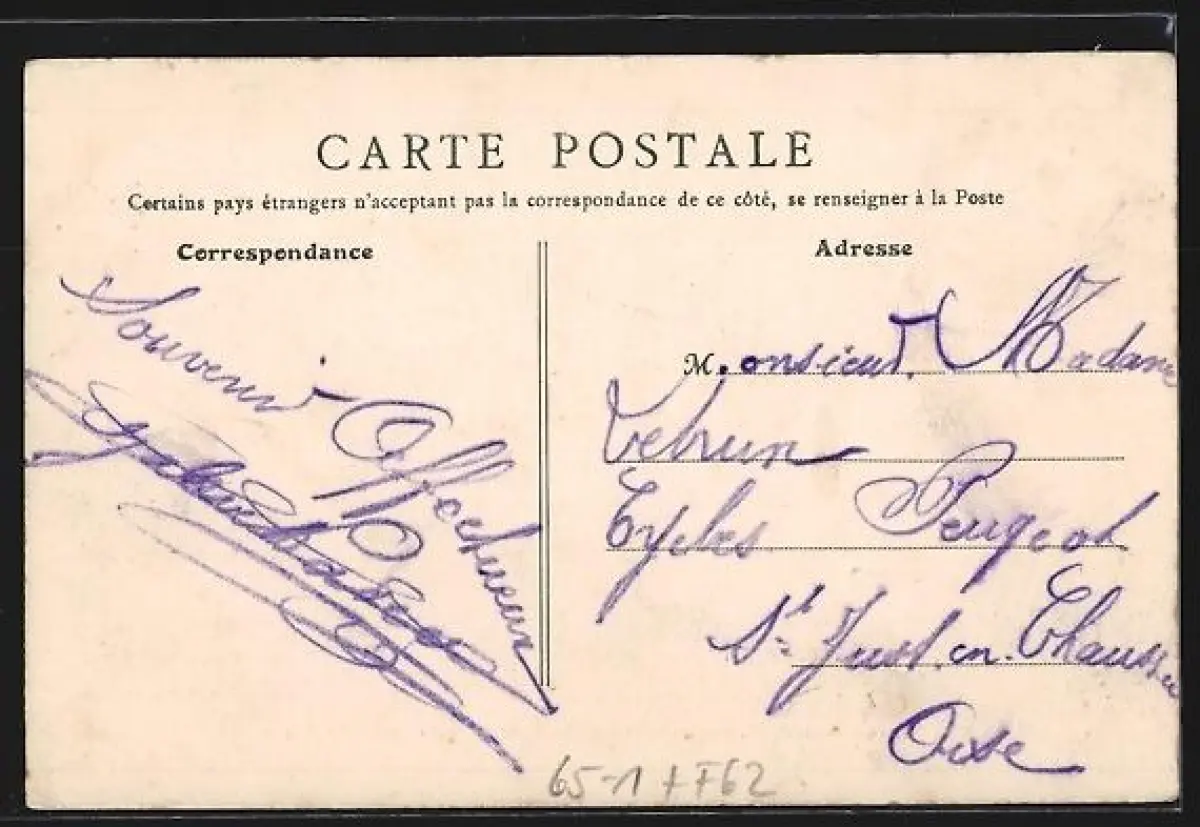 CARTE POSTALE
Certains pays étrangers n'acceptant pas la correspondance de ce côté, se renseigner à la Poste
Correspondance
Souvenir
Affectueux
Adresse
M.onsieur, Madame
Lebrun
Cycles Peugeot
St Just. en. Chaussée
Oise
65-1 + F62